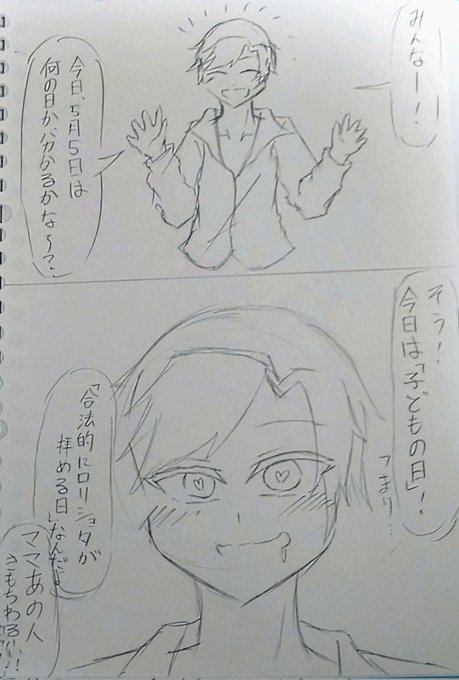 みんなー!!
今日、5月5日は
何の日か分かるかな〜?
そう!
今日は「子どもの日」!
つまり…
「合法的にロリショタが
拝める日」なんだよ
ママあの人
きもちわるい!!